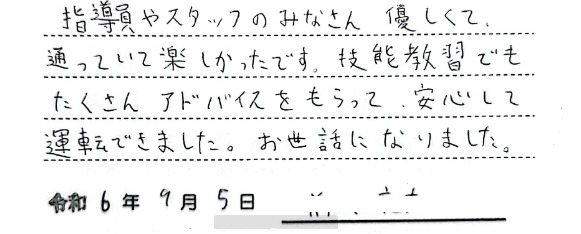 指導員やスタッフのみなさん 優しくて、
通っていて楽しかったです。技能教習でも
たくさん アドバイスをもらって、安心して
運転できました。お世話になりました。
令和 6 年 9 月 5 日